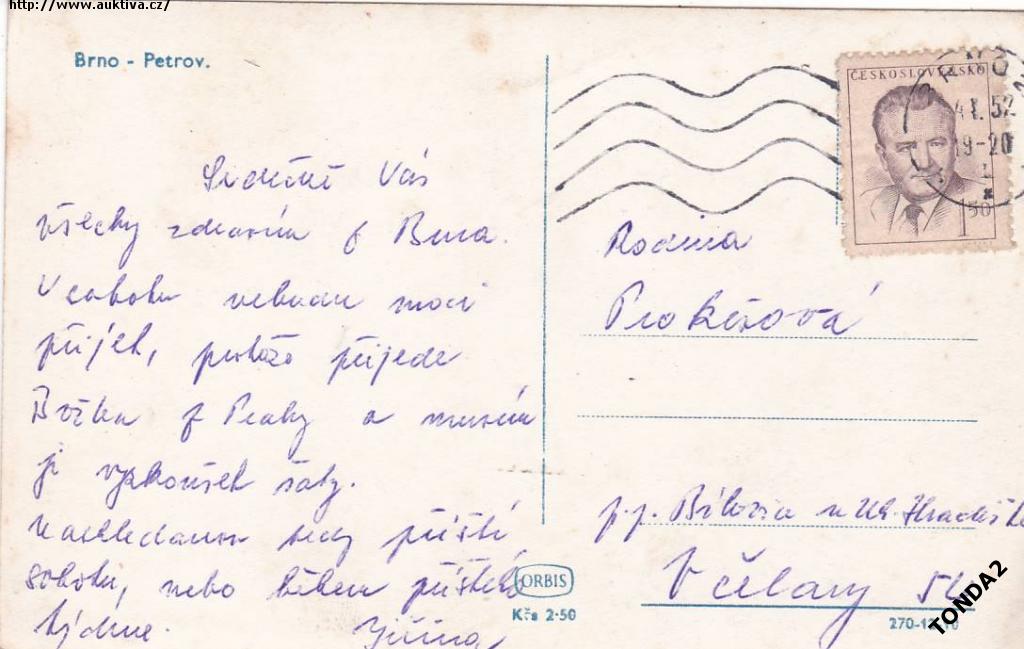 http://www.auktiva.cz/
Brno - Petrov.
ČESKOSLOVENSKO
BRNO
52
19-20
1 50
Srdečně Vás
všechny zdravím z Brna.
V sobotu nebudu moci
přijet, protože přijede
Božka z Prahy a musím
jí vyzkoušet šaty.
Nashledanou tedy příští
sobotu, nebo během příštího
týdne.
Jiřina
Rodina
Prokešová
p.p. Bílovice u Uh. Hradiště
Včelary 52
ORBIS
Kčs 2·50
TONDA2